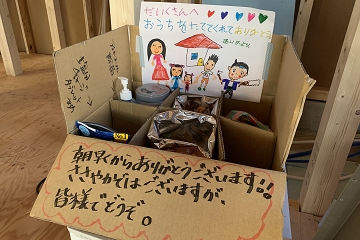 だいくさんへ
おうちをたててくれてありがとう
朝早くからありがとうございます!!
ささやかではございますが、
皆様でどうぞ。